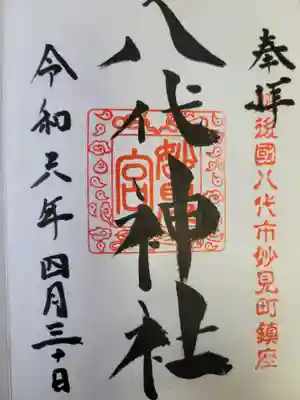 奉拝
後國八代市妙見町鎮座
八代神社
妙見宮
令和六年四月三十日